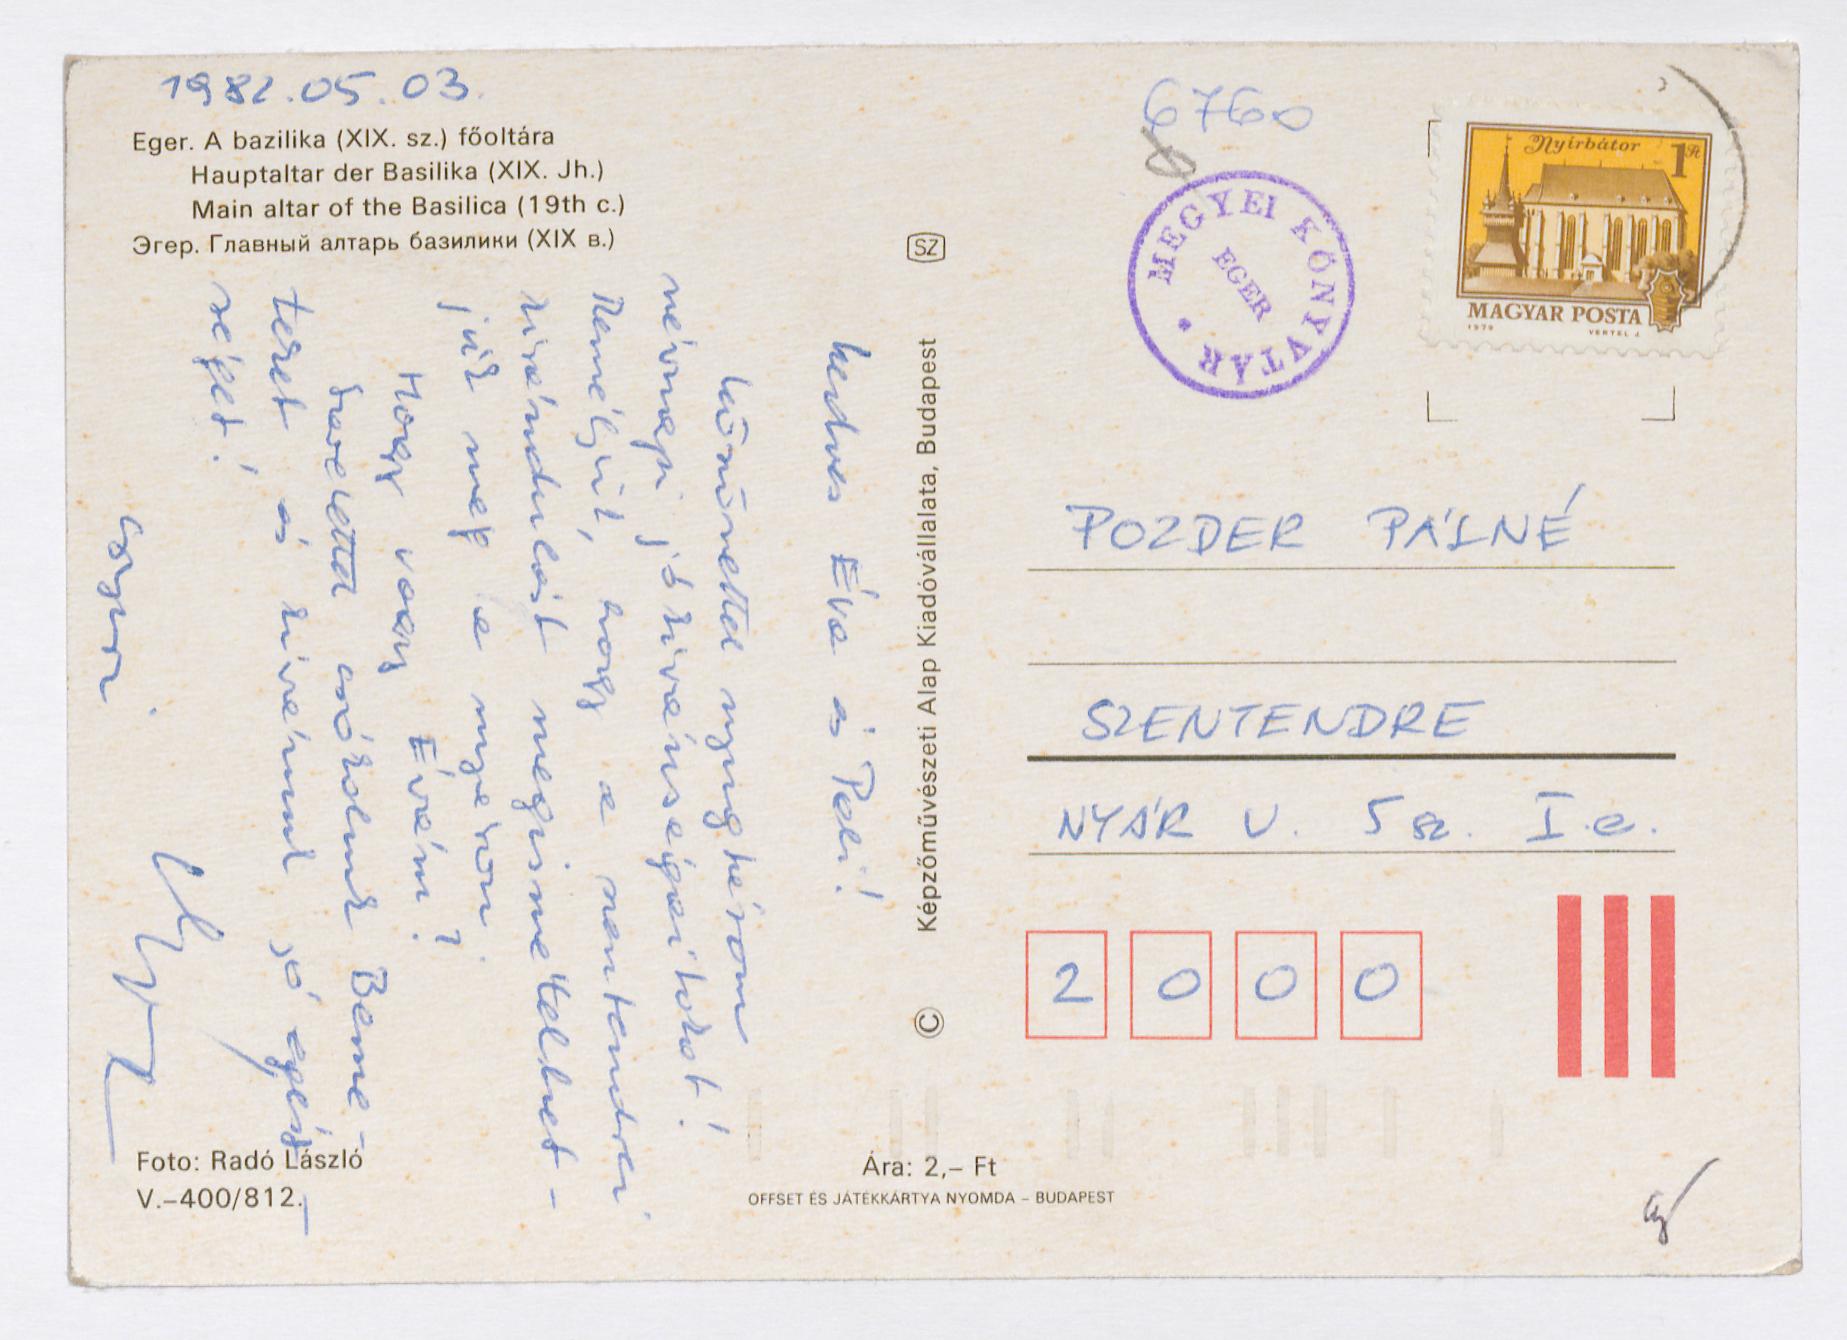 1982.05.03.
Eger. A bazilika (XIX. sz.) főoltára
Hauptaltar der Basilika (XIX. Jh.)
Main altar of the Basilica (19th c.)
Эгер. Главный алтарь базилики (XIX в.)
Kedves Éva és Pali!
Köszönettel nyugtázom
névnapi jókívánságaitokat!
Reméljük, hogy a szentendrei
kirándulást megismételhet-
jük még a nyáron.
Hogy vagy Évám?
Szeretettel csókolunk Benne-
teket és kívánunk jó egész-
séget!
Foto: Radó László
V.–400/812.
SZ
Képzőművészeti Alap Kiadóvállalata, Budapest
©
Ára: 2,– Ft
OFFSET ÉS JÁTÉKKÁRTYA NYOMDA – BUDAPEST
6760
MEGYEI KÖNYVTÁR
EGER
Nyírbátor
1 Ft
MAGYAR POSTA
1979 VERTEL J.
POZDER PÁLNÉ
SZENTENDRE
NYÁR U. 5 sz. I. e.
2 0 0 0